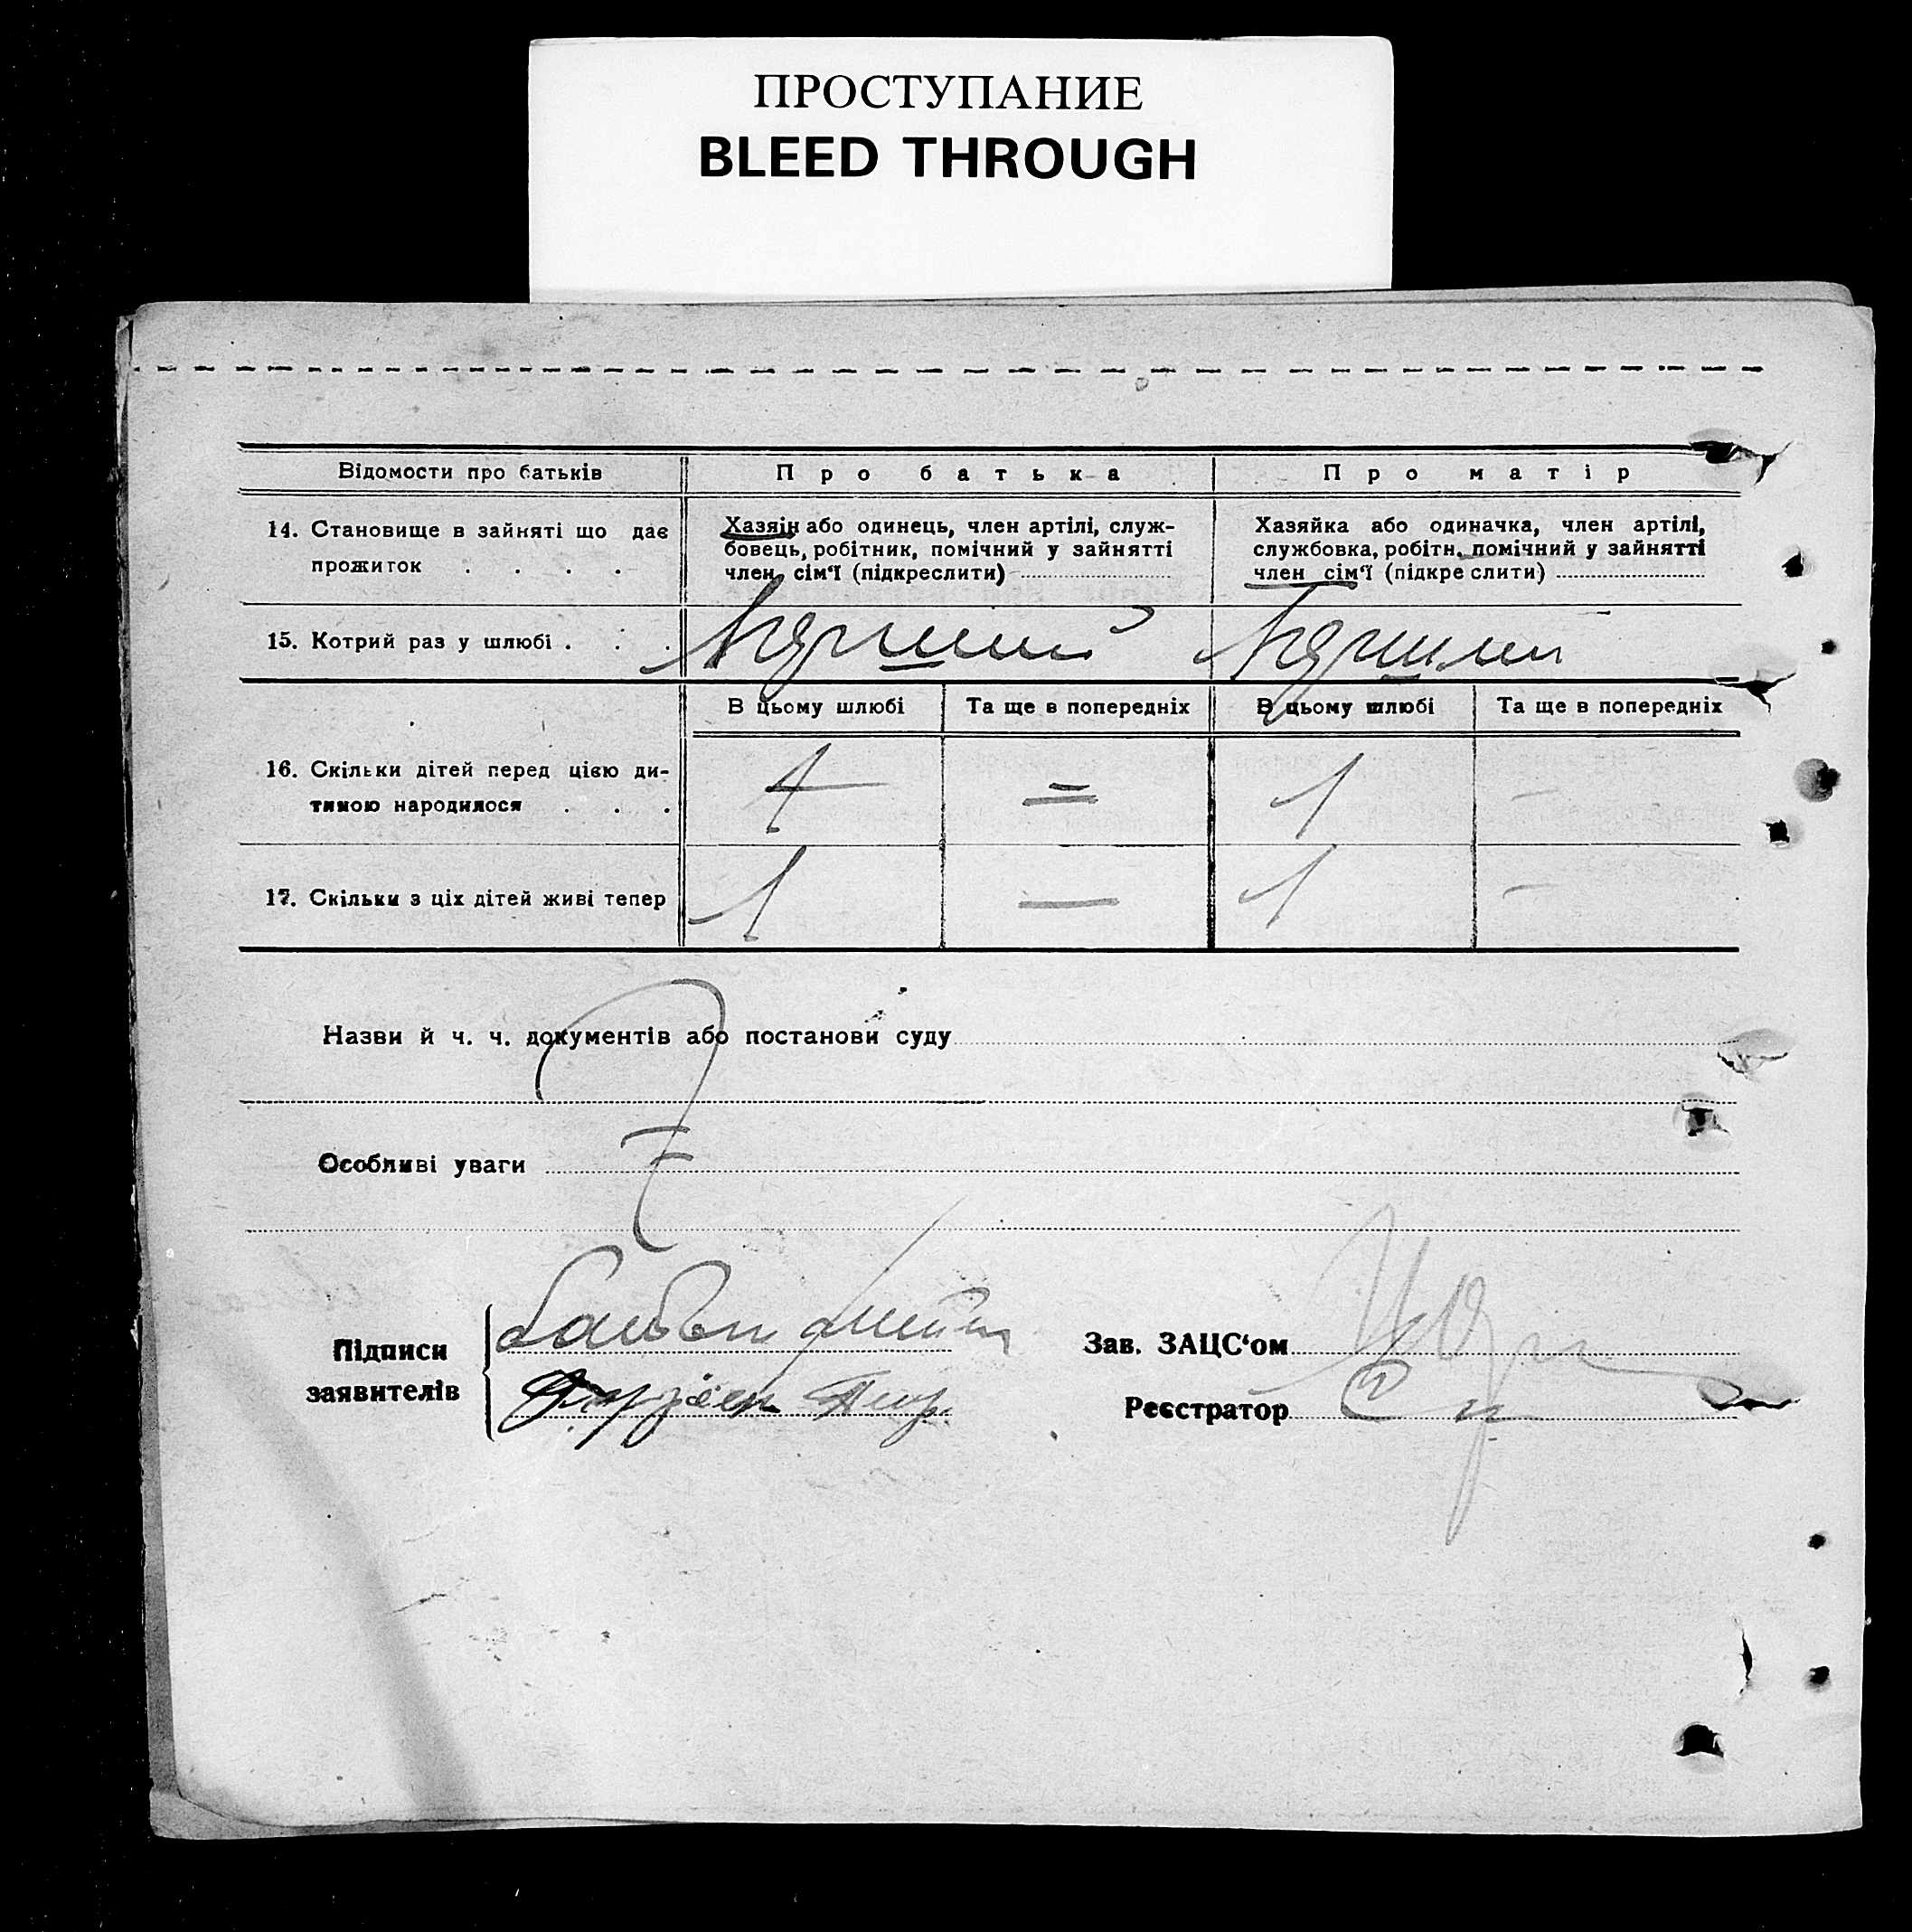 ПРОСТУПАНИЕ
BLEED THROUGH
Відомости про батьків
Про батька
Про матір
14. Становище в зайняті що дає
прожиток . . . .
Хазяін або одинець, член артілі, служ-
бовець, робітник, помічний у зайнятті
член сім'ї (підкреслити)
Хазяйка або одиначка, член артілі,
службовка, робітн. помічний у зайнятті
член сім'ї (підкреслити)
15. Котрий раз у шлюбі . . .
В цьому шлюбі
Та ще в попередніх
В цьому шлюбі
Та ще в попередніх
16. Скільки дітей перед цією ди-
тиною народилося . . .
1
=
1
-
17. Скільки з ціх дітей живі тепер
1
—
1
-
Назви й ч. ч. документів або постанови суду
Особливі уваги
Підписи
заявителів
Зав. ЗАЦС'ом
Реєстратор